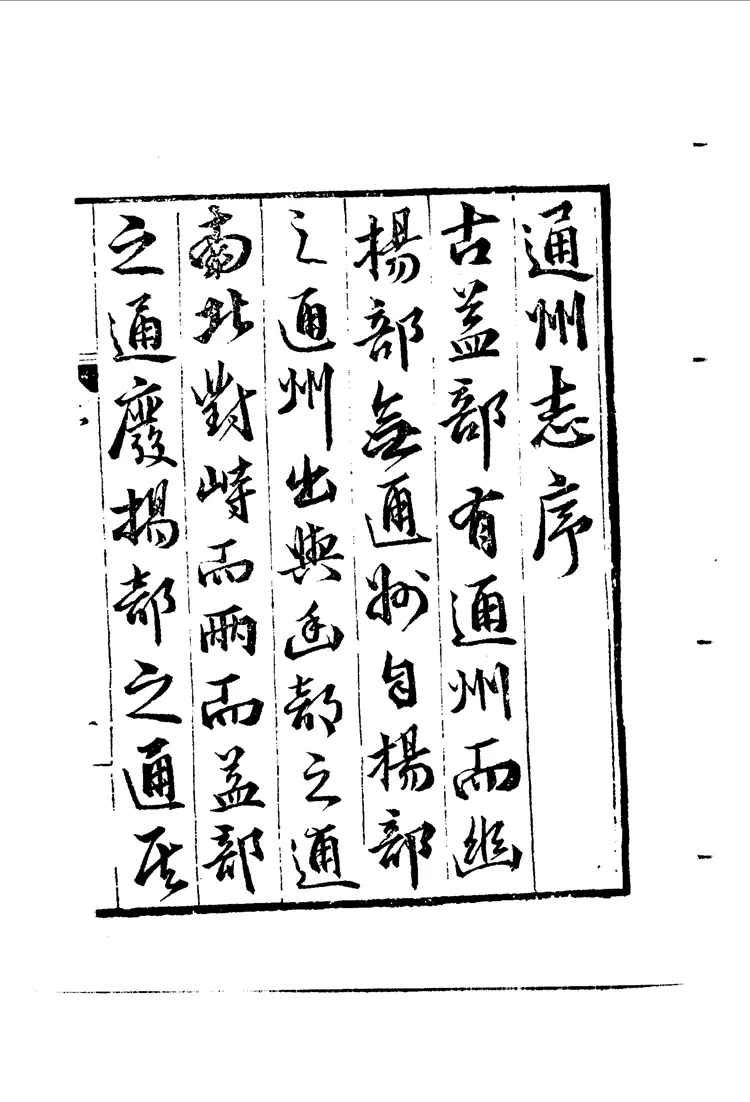 通州志序
古益部有通州而幽
揚部無通州自揚部
之通州出與幽部之通
南北對峙而兩而益部
之通廢揚部之通